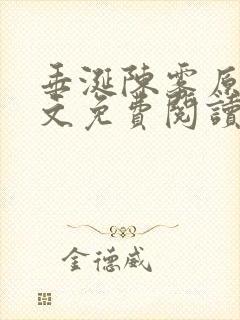 垂涎陳雾原
文免費閱讀
金德威